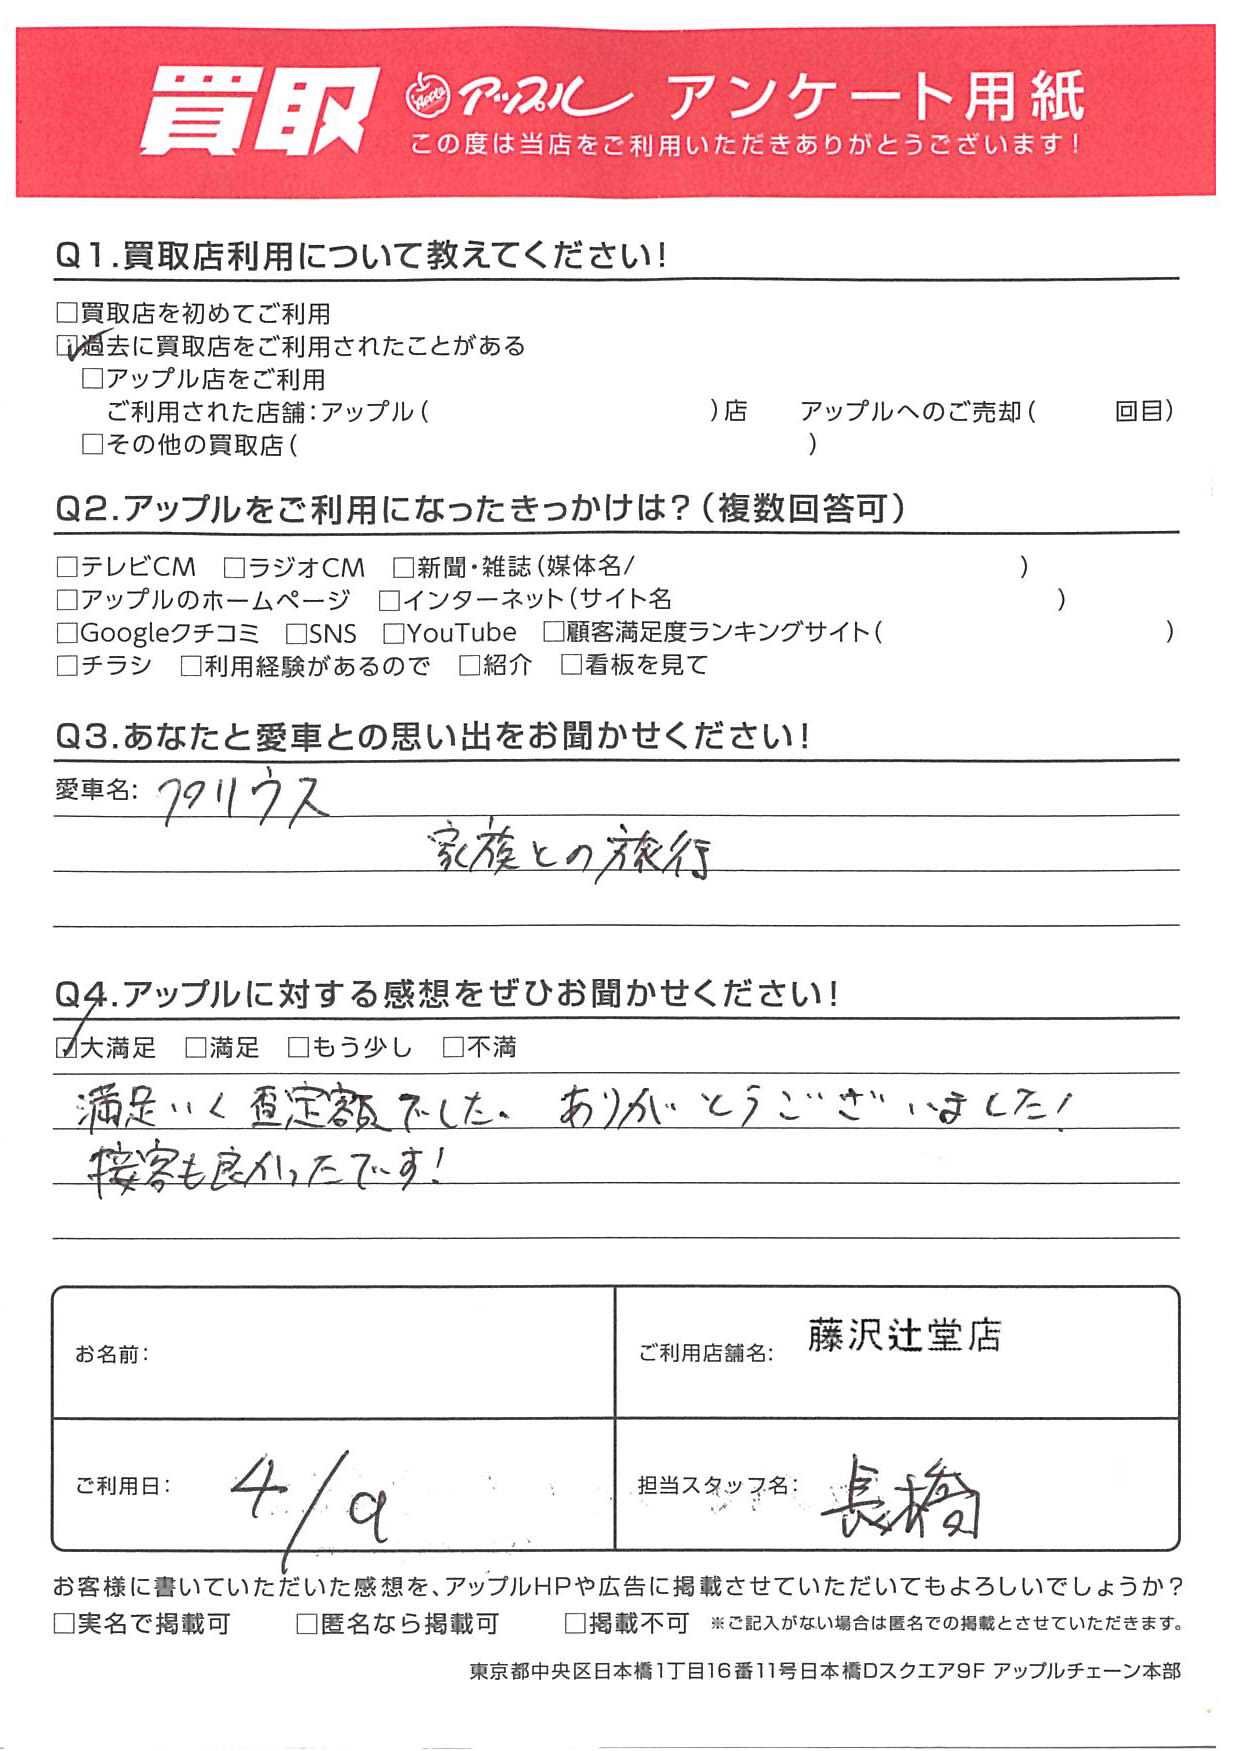 買取 Apple アップル アンケート用紙
この度は当店をご利用いただきありがとうございます！
Q1.買取店利用について教えてください！
□買取店を初めてご利用
☑過去に買取店をご利用されたことがある
□アップル店をご利用
ご利用された店舗：アップル（ ）店 アップルへのご売却（ 回目）
□その他の買取店（ ）
Q2.アップルをご利用になったきっかけは？（複数回答可）
□テレビCM □ラジオCM □新聞・雑誌（媒体名/ ）
□アップルのホームページ □インターネット（サイト名 ）
□Googleクチコミ □SNS □YouTube □顧客満足度ランキングサイト（ ）
□チラシ □利用経験があるので □紹介 □看板を見て
Q3.あなたと愛車との思い出をお聞かせください！
愛車名：
家族との旅行
Q4.アップルに対する感想をぜひお聞かせください！
☑大満足 □満足 □もう少し □不満
満足いく査定額でした。ありがとうございました！
接客も良かったです！
お名前： ご利用店舗名： 藤沢辻堂店
ご利用日： 4/9 担当スタッフ名： 長橋
お客様に書いていただいた感想を、アップルHPや広告に掲載させていただいてもよろしいでしょうか？
□実名で掲載可 □匿名なら掲載可 □掲載不可 ※ご記入がない場合は匿名での掲載とさせていただきます。
東京都中央区日本橋1丁目16番11号日本橋Dスクエア9F アップルチェーン本部